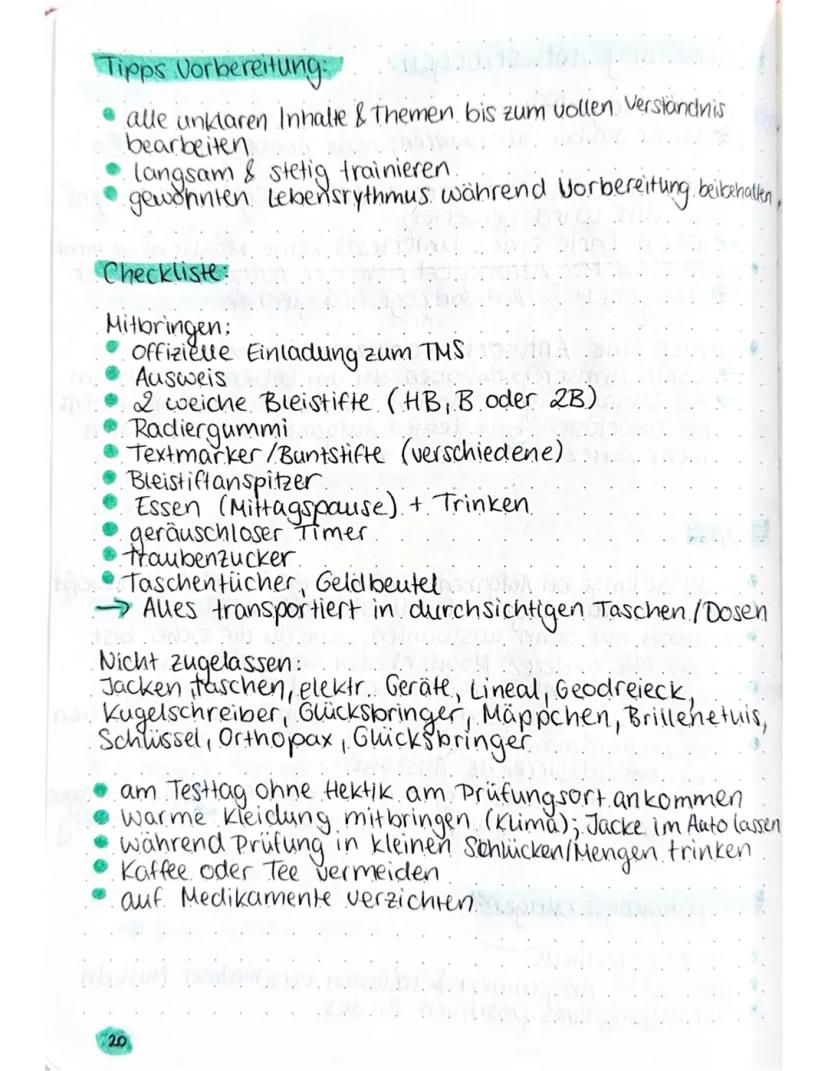 Tipps Vorbereitung:
alle unklaren Inhalte & Themen bis zum vollen Verständnis
bearbeiten
langsam & stetig trainieren
gewohnten Lebensrythmus während Vorbereitung beibehalten
Checkliste:
Mitbringen:
Offizielle Einladung zum TMS
Ausweis
2 weiche Bleistifte (HB, B oder 2B)
Radiergummi
Textmarker/Buntstifte (verschiedene)
Bleistiftanspitzer
Essen (Mittagspause) + Trinken
geräuschloser Timer
Traubenzucker
Taschentücher, Geldbeutel
→ Alles transportiert in durchsichtigen Taschen/Dosen
Nicht zugelassen:
Jacken, Taschen, elektr. Geräte, Lineal, Geodreieck,
Kugelschreiber, Glücksbringer, Mäppchen, Brillenetuis,
Schlüssel, Orthopax, Glücksbringer
am Testtag ohne Hektik am Prüfungsort ankommen
warme Kleidung mitbringen (Klima); Jacke im Auto lassen
während Prüfung in kleinen Schlücken/Mengen trinken
Kaffee oder Tee vermeiden
auf Medikamente verzichten
20